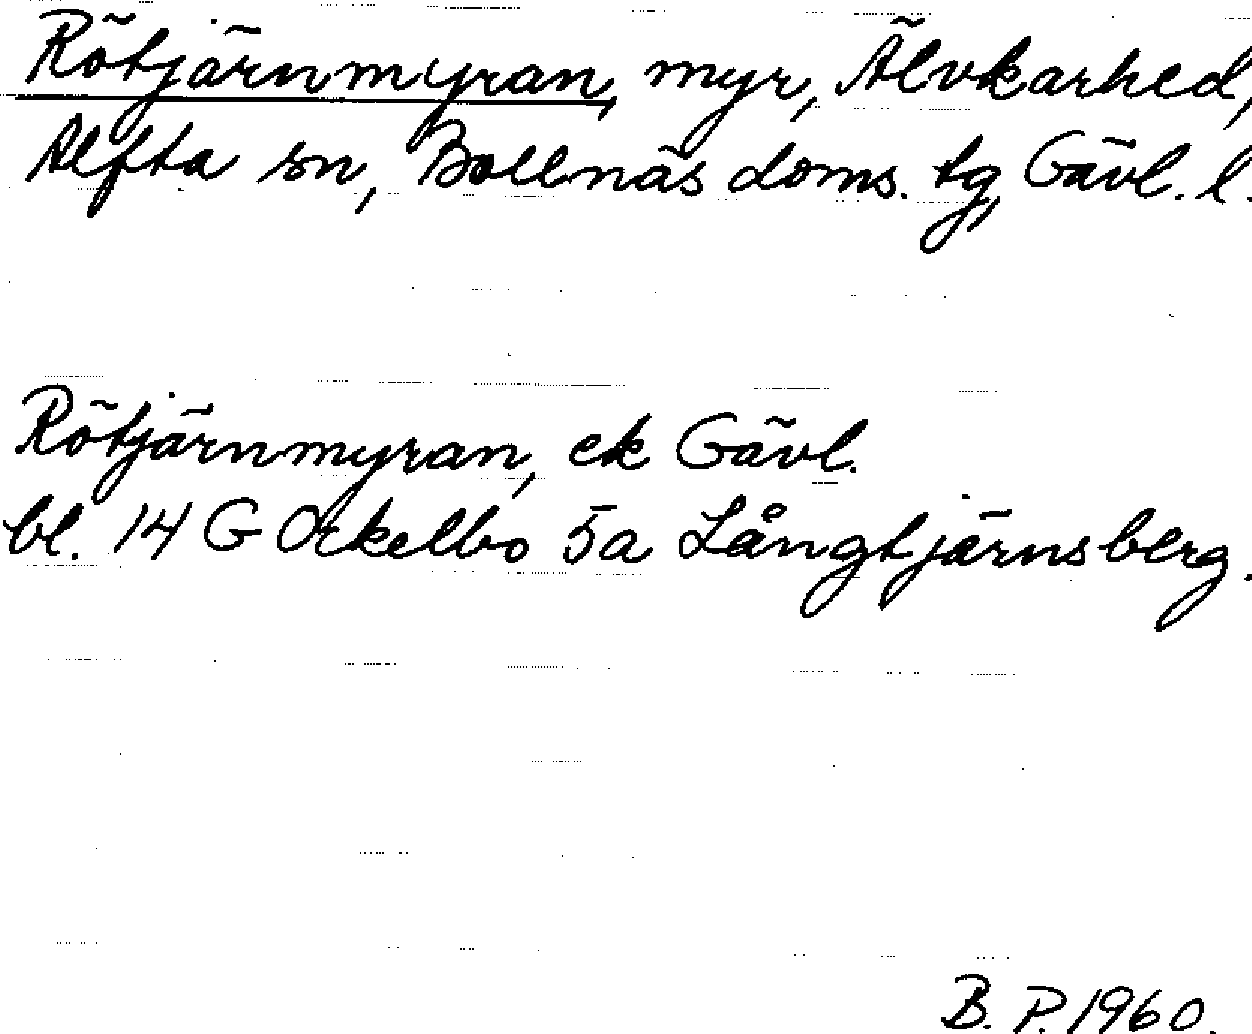 Rötjärnmyran, myr, Älvkarhed,
Alfta sn, Bollnäs doms. tg, Gävl. l.
Rötjärnmyran, ek Gävl.
bl. 14 G Ockelbo 5a Långtjärnsberg.
B. P. 1960.